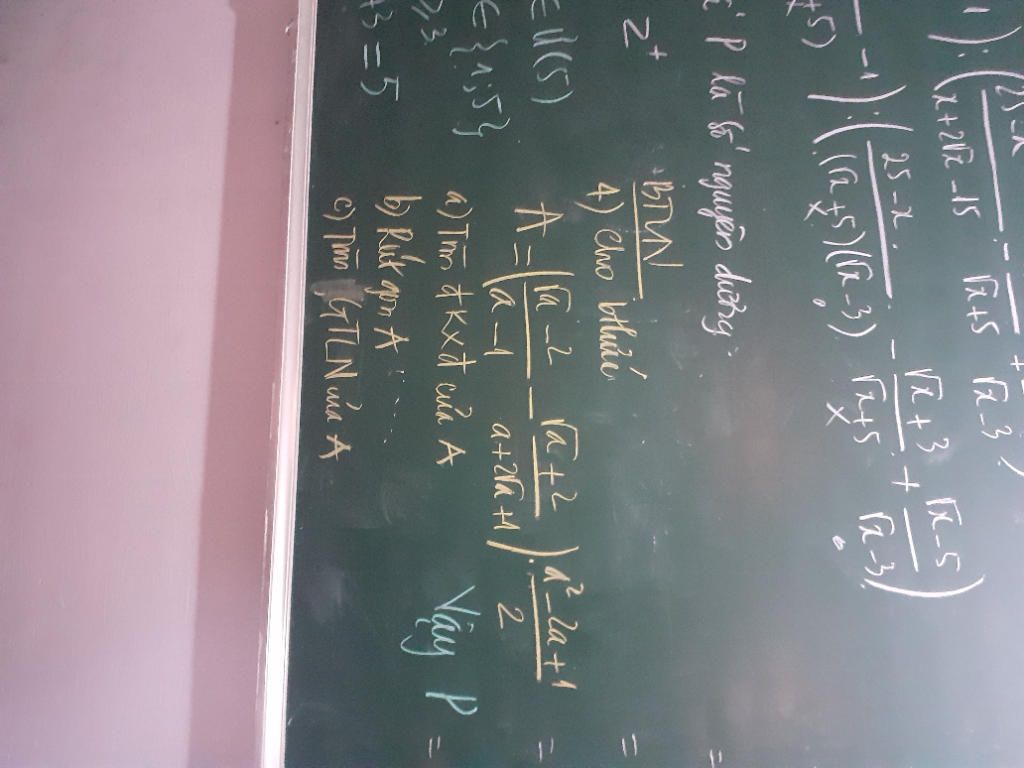 25-x
(x+2√x-15
√x+5
√x-3
-1) : (25-x/((√x+5)(√x-3)) - √x+3/√x+5 + √x-5/√x-3)
P là số nguyên dương.
Z⁺
∈ Ư(5)
∈ {1;5}
+3 = 5
BTVN
4) Cho bthức
A = (√a-2/a-1 - √a+2/a+2√a+1) . a²-2a+1/2
a) Tìm đkxđ của A
b) Rút gọn A
c) Tìm GTLN của A
Vậy P
=
=
=
=